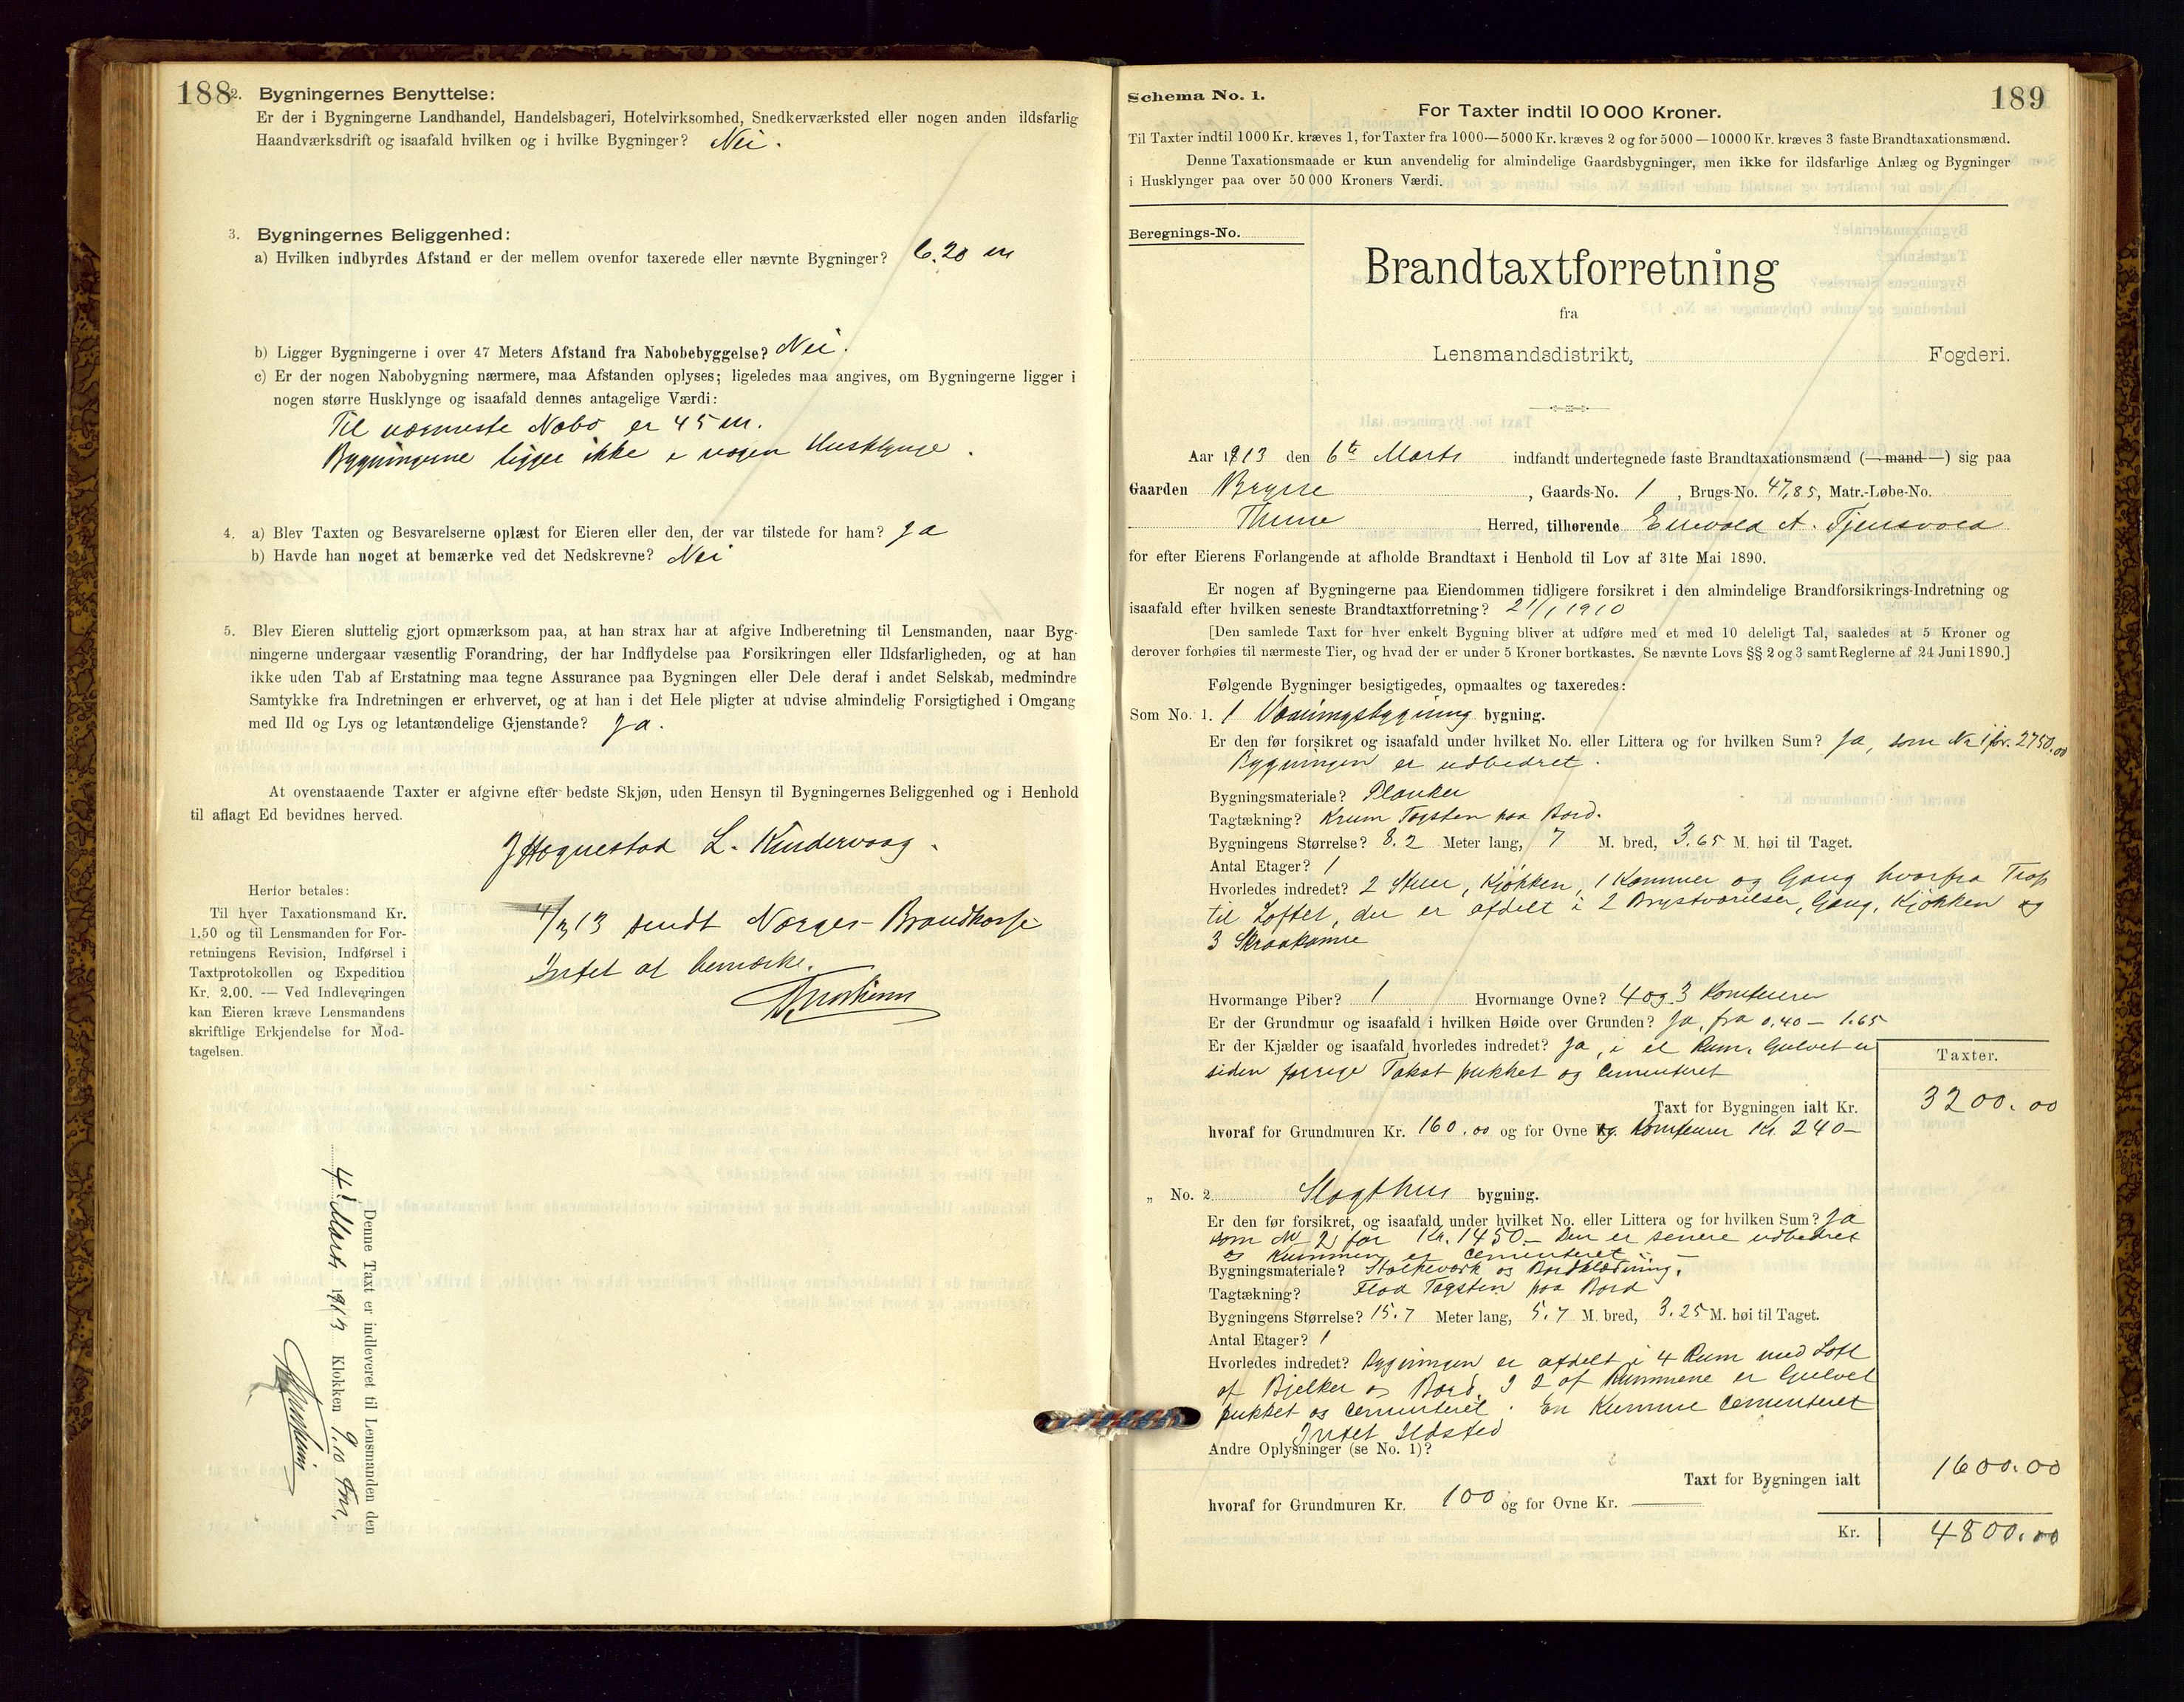 188
2. Bygningernes Benyttelse:
Er der i Bygningerne Landhandel, Handelsbageri, Hotelvirksomhed, Snedkerværksted eller nogen anden ildsfarlig
Haandværksdrift og isaafald hvilken og i hvilke Bygninger? Nei.
3. Bygningernes Beliggenhed:
a) Hvilken indbyrdes Afstand er der mellem ovenfor taxerede eller nævnte Bygninger? 6.20 m
b) Ligger Bygningerne i over 47 Meters Afstand fra Nabobebyggelse? Nei.
c) Er der nogen Nabobygning nærmere, maa Afstanden oplyses; ligeledes maa angives, om Bygningerne ligger i
nogen større Husklynge og isaafald dennes antagelige Værdi:
Til nærmeste Nabo er 45 m.
Bygningerne ligger ikke i nogen Husklynge.
4. a) Blev Taxten og Besvarelserne oplæst for Eieren eller den, der var tilstede for ham? Ja
b) Havde han noget at bemærke ved det Nedskrevne? Nei
5. Blev Eieren sluttelig gjort opmærksom paa, at han strax har at afgive Indberetning til Lensmanden, naar Byg-
ningerne undergaar væsentlig Forandring, der har Indflydelse paa Forsikringen eller Ildsfarligheden, og at han
ikke uden Tab af Erstatning maa tegne Assurance paa Bygningen eller Dele deraf i andet Selskab, medmindre
Samtykke fra Indretningen er erhvervet, og at han i det Hele pligter at udvise almindelig Forsigtighed i Omgang
med Ild og Lys og letantændelige Gjenstande? Ja.
At ovenstaaende Taxter er afgivne efter bedste Skjøn, uden Hensyn til Bygningernes Beliggenhed og i Henhold
til aflagt Ed bevidnes herved.
J Hognestad L. Kindervaag.
4/3 13 sendt Norges Brandkasse
Intet at bemærke.
Herfor betales:
Til hver Taxationsmand Kr.
1.50 og til Lensmanden for For-
retningens Revision, Indførsel i
Taxtprotokollen og Expedition
Kr. 2.00. — Ved Indleveringen
kan Eieren kræve Lensmandens
skriftlige Erkjendelse for Mod-
tagelsen.
Denne Taxt er indleveret til Lensmanden den
4' Marts 1913 Klokken 9.10 Fm.
189
Schema No. 1.
For Taxter indtil 10 000 Kroner.
Til Taxter indtil 1000 Kr. kræves 1, for Taxter fra 1000—5000 Kr. kræves 2 og for 5000—10000 Kr. kræves 3 faste Brandtaxationsmænd.
Denne Taxationsmaade er kun anvendelig for almindelige Gaardsbygninger, men ikke for ildsfarlige Anlæg og Bygninger
i Husklynger paa over 50 000 Kroners Værdi.
Beregnings-No.
Brandtaxtforretning
fra
Lensmandsdistrikt, Fogderi.
Aar 1913 den 6te Marts indfandt undertegnede faste Brandtaxationsmænd (— mand —) sig paa
Gaarden Bryne, Gaards-No. 1, Brugs-No. 47,85, Matr.-Løbe-No.
Thime Herred, tilhørende Enevold A. Tjensvold
for efter Eierens Forlangende at afholde Brandtaxt i Henhold til Lov af 31te Mai 1890.
Er nogen af Bygningerne paa Eiendommen tidligere forsikret i den almindelige Brandforsikrings-Indretning og
isaafald efter hvilken seneste Brandtaxtforretning? 21/1 1910
[Den samlede Taxt for hver enkelt Bygning bliver at udføre med et med 10 deleligt Tal, saaledes at 5 Kroner og
derover forhøies til nærmeste Tier, og hvad der er under 5 Kroner bortkastes. Se nævnte Lovs §§ 2 og 3 samt Reglerne af 24 Juni 1890.]
Følgende Bygninger besigtigedes, opmaaltes og taxeredes:
Som No. 1. 1 Vaaningsbygning bygning.
Er den før forsikret og isaafald under hvilket No. eller Littera og for hvilken Sum? Ja, som No 1 for. 2750.00
Bygningen er udbedret.
Bygningsmateriale? Planker
Tagtækning? Krum Tagsten paa Bord.
Bygningens Størrelse? 8.2 Meter lang, 7 M. bred, 3.65 M. høi til Taget.
Antal Etager? 1
Hvorledes indredet? 2 Stuer, Kjøkken, 1 Kammer og Gang hvorfra Trap
til Loftet, der er afdelt i 2 Brystværelser, Gang, Kjøkken og
3 Skraakamre
Hvormange Piber? 1 Hvormange Ovne? 4 og 3 Komfurer
Er der Grundmur og isaafald i hvilken Høide over Grunden? Ja, fra 0.40 — 1.65
Er der Kjælder og isaafald hvorledes indredet? Ja, i et Rum, Gulvet er
siden forrige Takst pukket og cementeret
Taxter.
Taxt for Bygningen ialt Kr. 3200.00
hvoraf for Grundmuren Kr. 160.00 og for Ovne og Komfurer Kr. 240—
„ No. 2 Slagthus bygning.
Er den før forsikret, og isaafald under hvilket No. eller Littera og for hvilken Sum? Ja
som No 2 for Kr. 1450.— Den er senere udbedret
og Kummen er cementeret. —
Bygningsmateriale? Stolpeværk og Bordklædning.
Tagtækning? Flad Tagsten paa Bord
Bygningens Størrelse? 15.7 Meter lang, 5.7 M. bred, 3.25 M. høi til Taget.
Antal Etager? 1
Hvorledes indredet? Bygningen er afdelt i 4 Rum med Loft
af Bjelker og Bord. I 2 af Rummene er Gulvet
pukket og cementeret. En Kumme cementeret
Intet Ildsted
Andre Oplysninger (se No. 1)?
Taxt for Bygningen ialt 1600.00
hvoraf for Grundmuren Kr. 100 og for Ovne Kr. ——
Kr. 4800.00